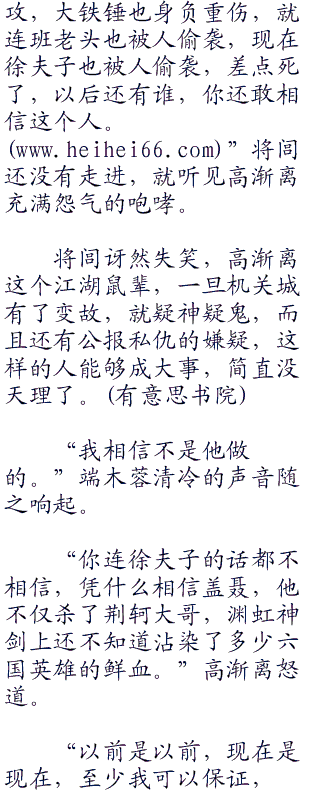 攻，大铁锤也身负重伤，就
连班老头也被人偷袭，现在
徐夫子也被人偷袭，差点死
了，以后还有谁，你还敢相
信这个人。
(www.heihei66.com)”将闾
还没有走进，就听见高渐离
充满怨气的咆哮。
将闾讶然失笑，高渐离
这个江湖鼠辈，一旦机关城
有了变故，就疑神疑鬼，而
且还有公报私仇的嫌疑，这
样的人能够成大事，简直没
天理了。(有意思书院)
“我相信不是他做
的。”端木蓉清冷的声音随
之响起。
“你连徐夫子的话都不
相信，凭什么相信盖聂，他
不仅杀了荆轲大哥，渊虹神
剑上还不知道沾染了多少六
国英雄的鲜血。”高渐离怒
道。
“以前是以前，现在是
现在，至少我可以保证，